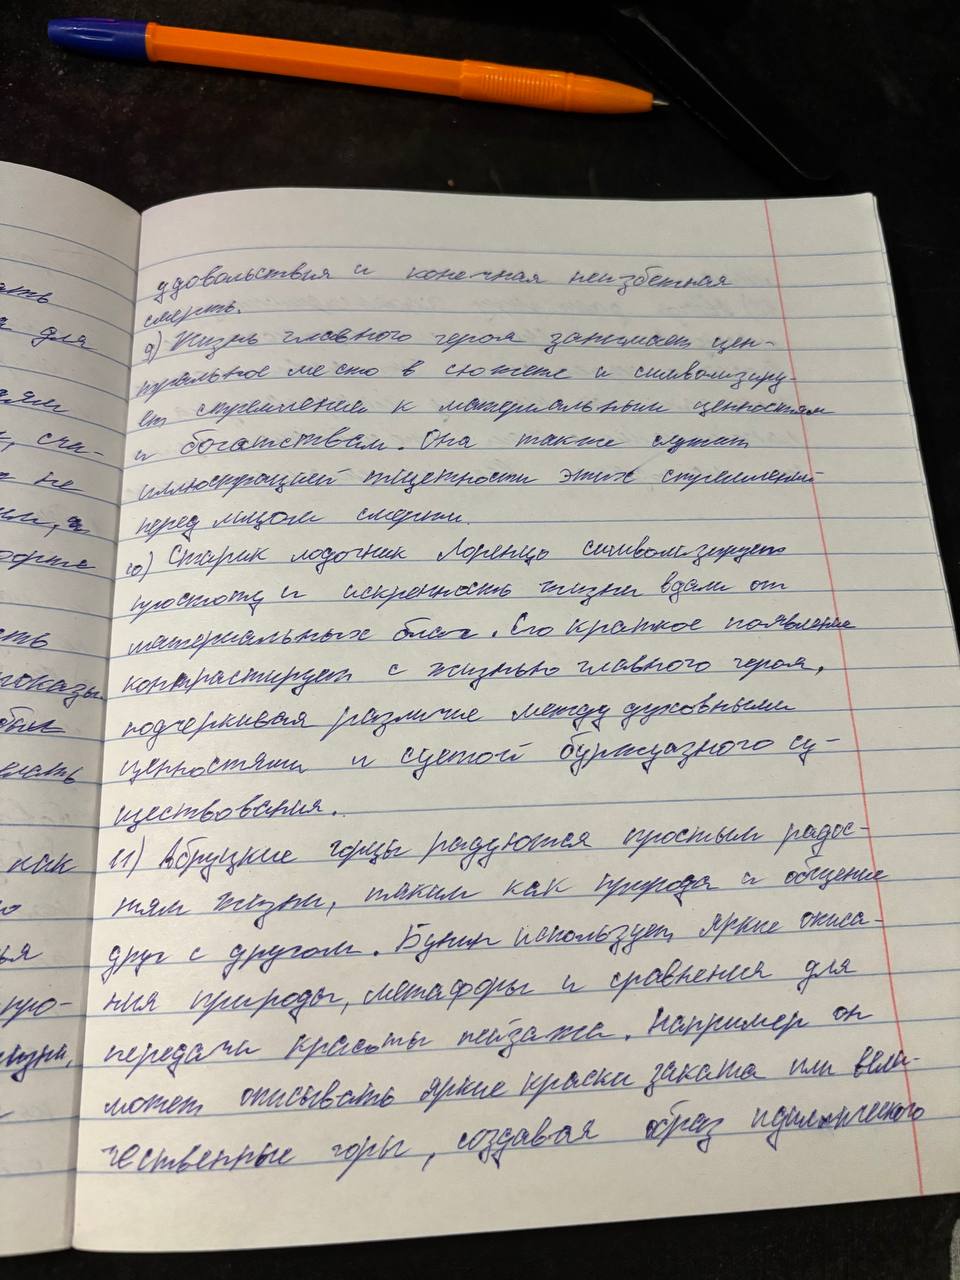 ать
для
ям
, счи-
не
орые
сть
показы-
обы
елать
как
о
ья
про-
изни,
удовольствия и конечная неизбежная
смерть.
9) Жизнь главного героя занимает цен-
тральное место в сюжете и символизиру-
ет стремление к материальным ценностям
и богатствам. Она также служит
иллюстрацией тщетности этих стремлений
перед лицом смерти.
10) Старик лодочник Лоренцо символизирует
простоту и искренность жизни вдали от
материальных благ. Его краткое появление
контрастирует с жизнью главного героя,
подчеркивая различие между духовными
ценностями и суетой буржуазного су-
ществования.
11) Абруцкие горцы радуются простым радос-
тям жизни, таким как природа и общение
друг с другом. Бунин использует яркие описа-
ния природы, метафоры и сравнения для
передачи красоты пейзажа. Например он
может описывать яркие краски заката или вели-
чественные горы, создавая образ идиллического